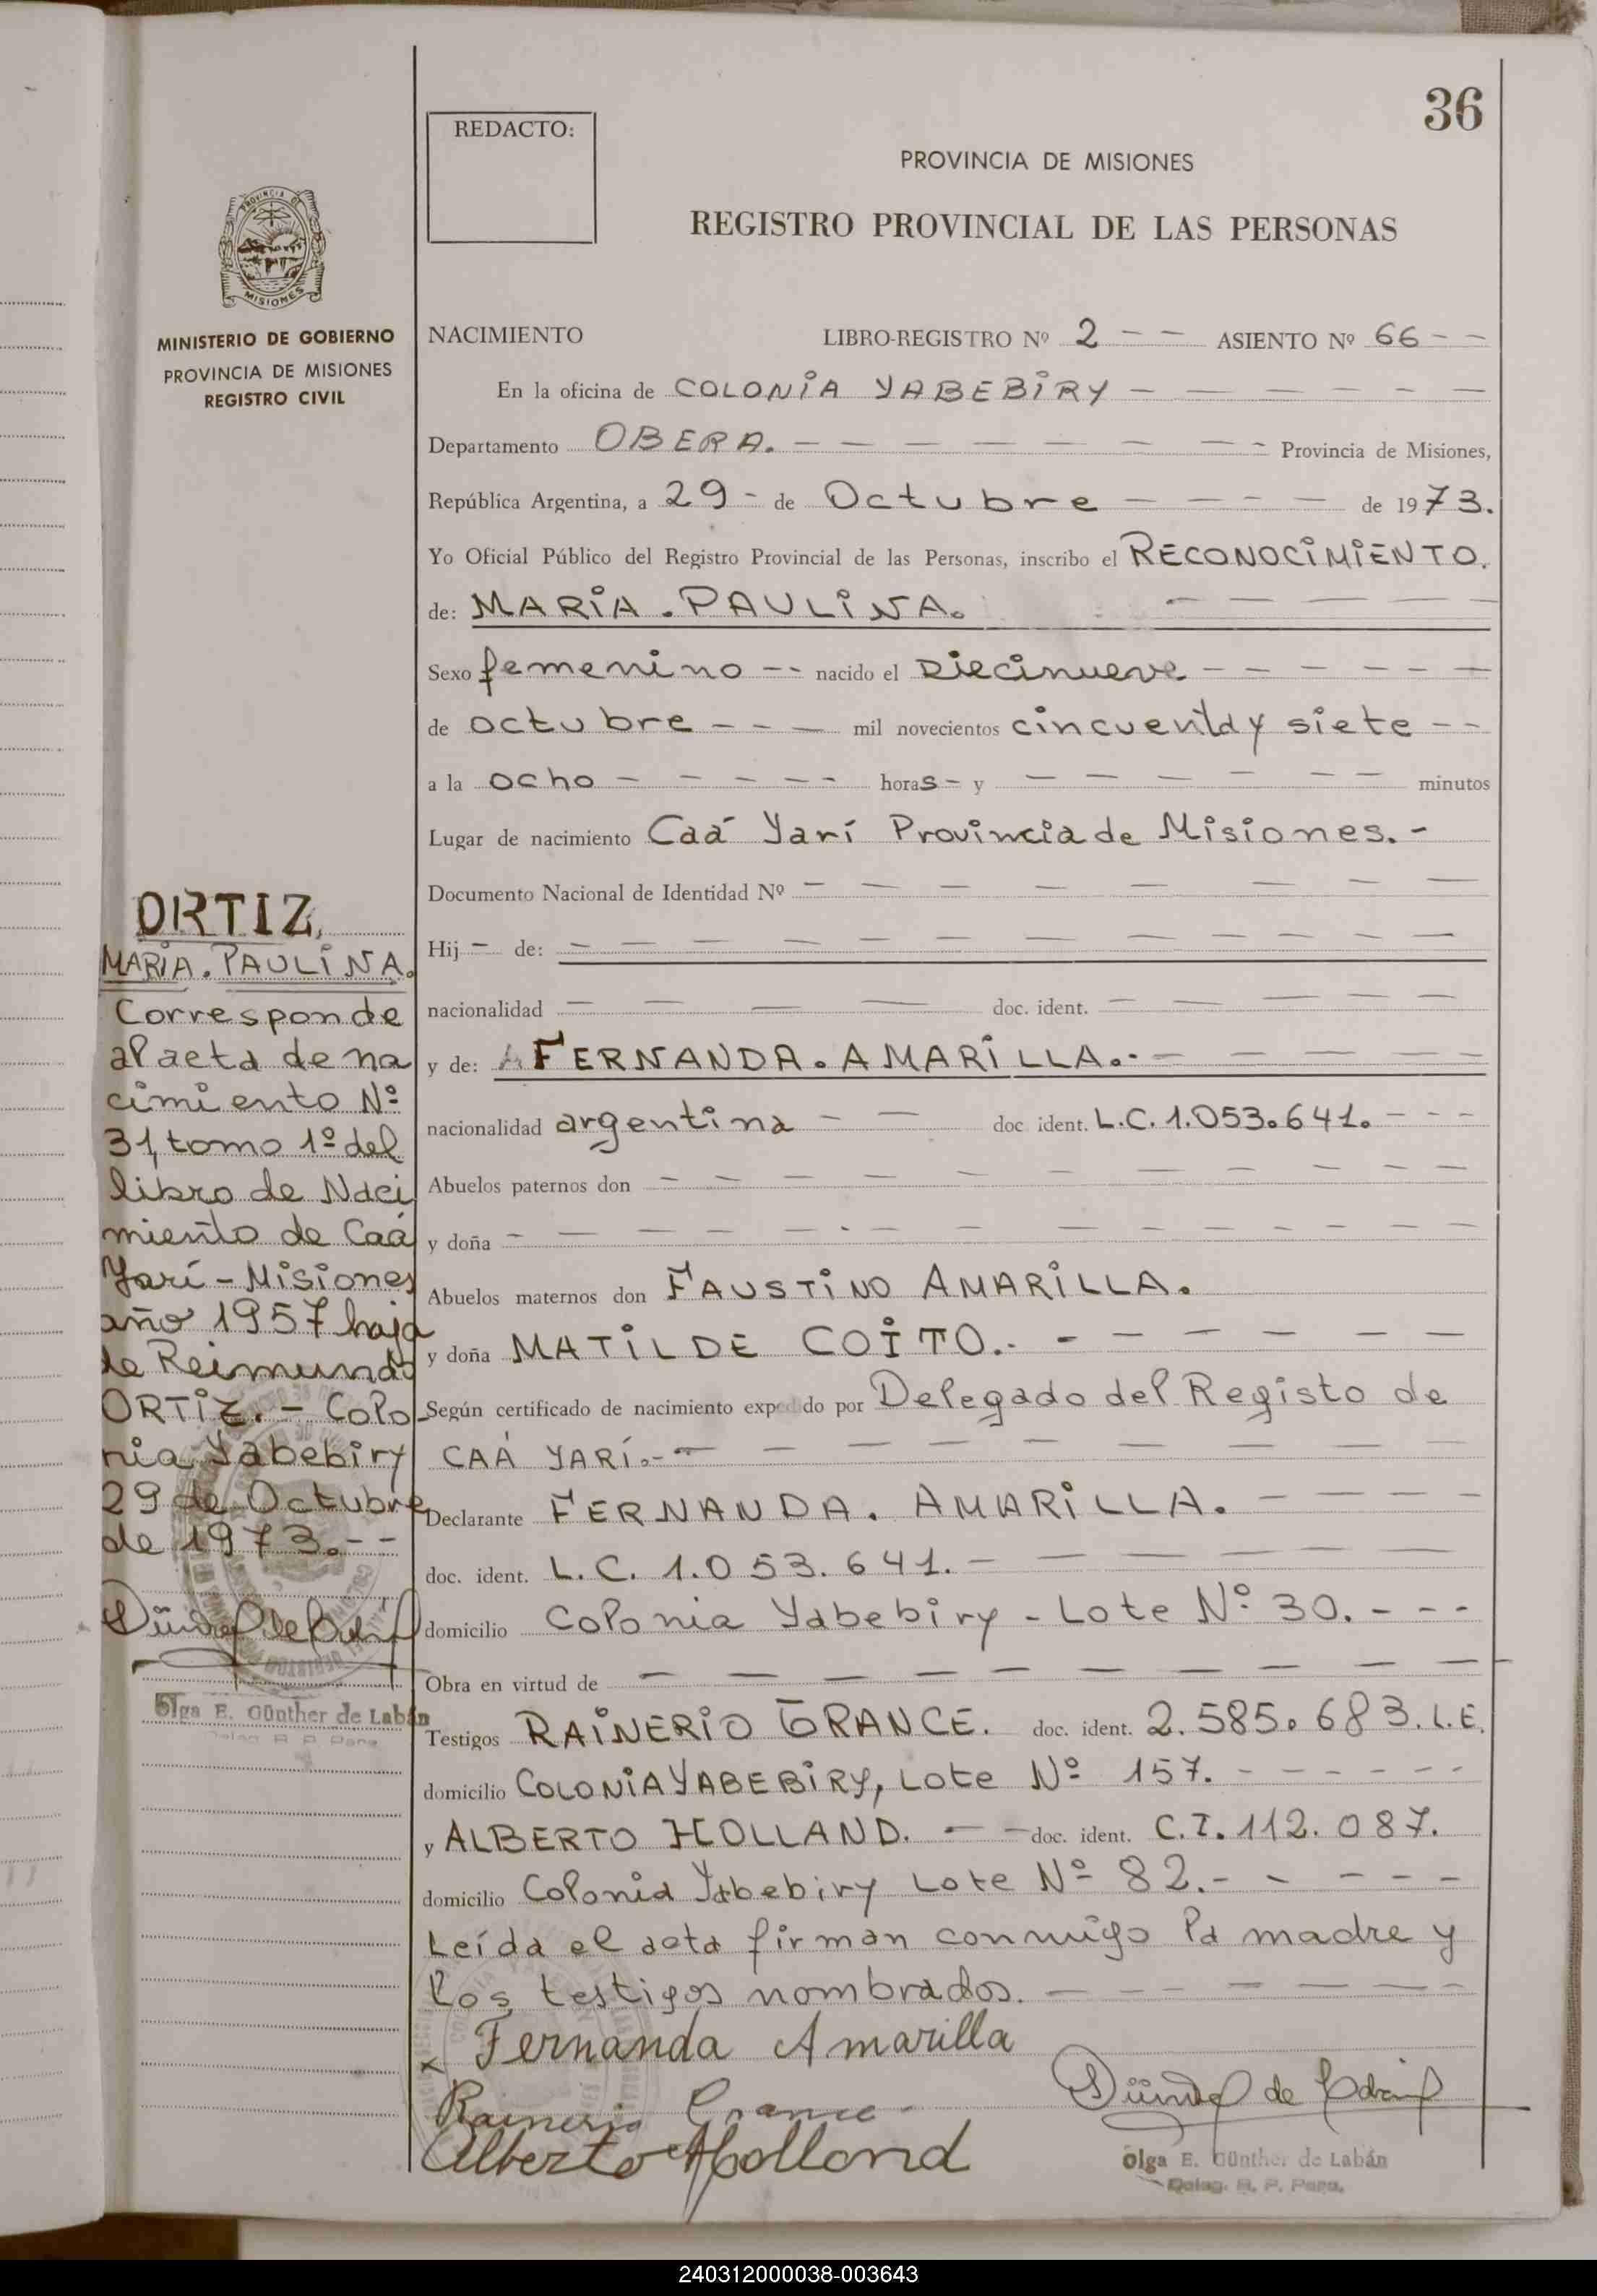 36
REDACTO:
PROVINCIA DE MISIONES
REGISTRO PROVINCIAL DE LAS PERSONAS
PROVINCIA DE
MISIONES
MINISTERIO DE GOBIERNO
PROVINCIA DE MISIONES
REGISTRO CIVIL
NACIMIENTO LIBRO-REGISTRO Nº 2 - - ASIENTO Nº 66 - -
En la oficina de COLONIA YABEBIRY - - - - - -
Departamento OBERA. - - - - - - - - Provincia de Misiones,
República Argentina, a 29 - de Octubre - - - - de 1973.
Yo Oficial Público del Registro Provincial de las Personas, inscribo el RECONOCIMIENTO.
de: MARIA . PAULINA. - - - - - -
Sexo femenino -- nacido el Diecinueve - - - - - -
de octubre - - - mil novecientos cincuenta y siete - -
a la ocho - - - - - horas - y - - - - - - minutos
Lugar de nacimiento Caá Yarí Provincia de Misiones. -
Documento Nacional de Identidad Nº - - - - - - - -
Hij - de: - - - - - - - - - - -
nacionalidad - - - - doc. ident. - - - - -
y de: FERNANDA . AMARILLA. - - - - - -
nacionalidad argentina - - doc ident. L.C. 1.053.641. - - -
Abuelos paternos don - - - - - - - - - - -
y doña - - - - - - - - - - - - -
Abuelos maternos don FAUSTINO AMARILLA.
y doña MATILDE COITO. - - - - - - -
Según certificado de nacimiento expedido por Delegado del Registo de
CAÁ YARÍ. - - - - - - - - - -
Declarante FERNANDA . AMARILLA. - - - -
doc. ident. L.C. 1.053.641. - - - - - -
domicilio Colonia Yabebiry - Lote Nº 30. - - -
Obra en virtud de - - - - - - - - - -
Testigos RAINERIO GRANCE. doc. ident. 2.585.683. L.E.
domicilio COLONIA YABEBIRY, Lote Nº 157. - - - - - -
y ALBERTO HOLLAND. - - doc. ident. C.I. 112.087.
domicilio Colonia Yabebiry Lote Nº 82. - - - - -
Leída el acta firman conmigo la madre y
los testigos nombrados. - - - - - -
x Fernanda Amarilla
Rainerio Grance
Alberto Holland
Olga E. Günther de Labán
Deleg. R. P. Pers.
ORTIZ,
MARIA . PAULINA.
Corresponde
al acta de na
cimiento Nº
31, tomo 1º del
libro de Naci
miento de Caá
Yarí - Misiones
año 1957 hoja
de Reimundo
ORTIZ. - Colo-
nia Yabebiry
29 de Octubre
de 1973. - -
Olga E. Günther de Labán
Deleg. R. P. Pers.
240312000038-003643